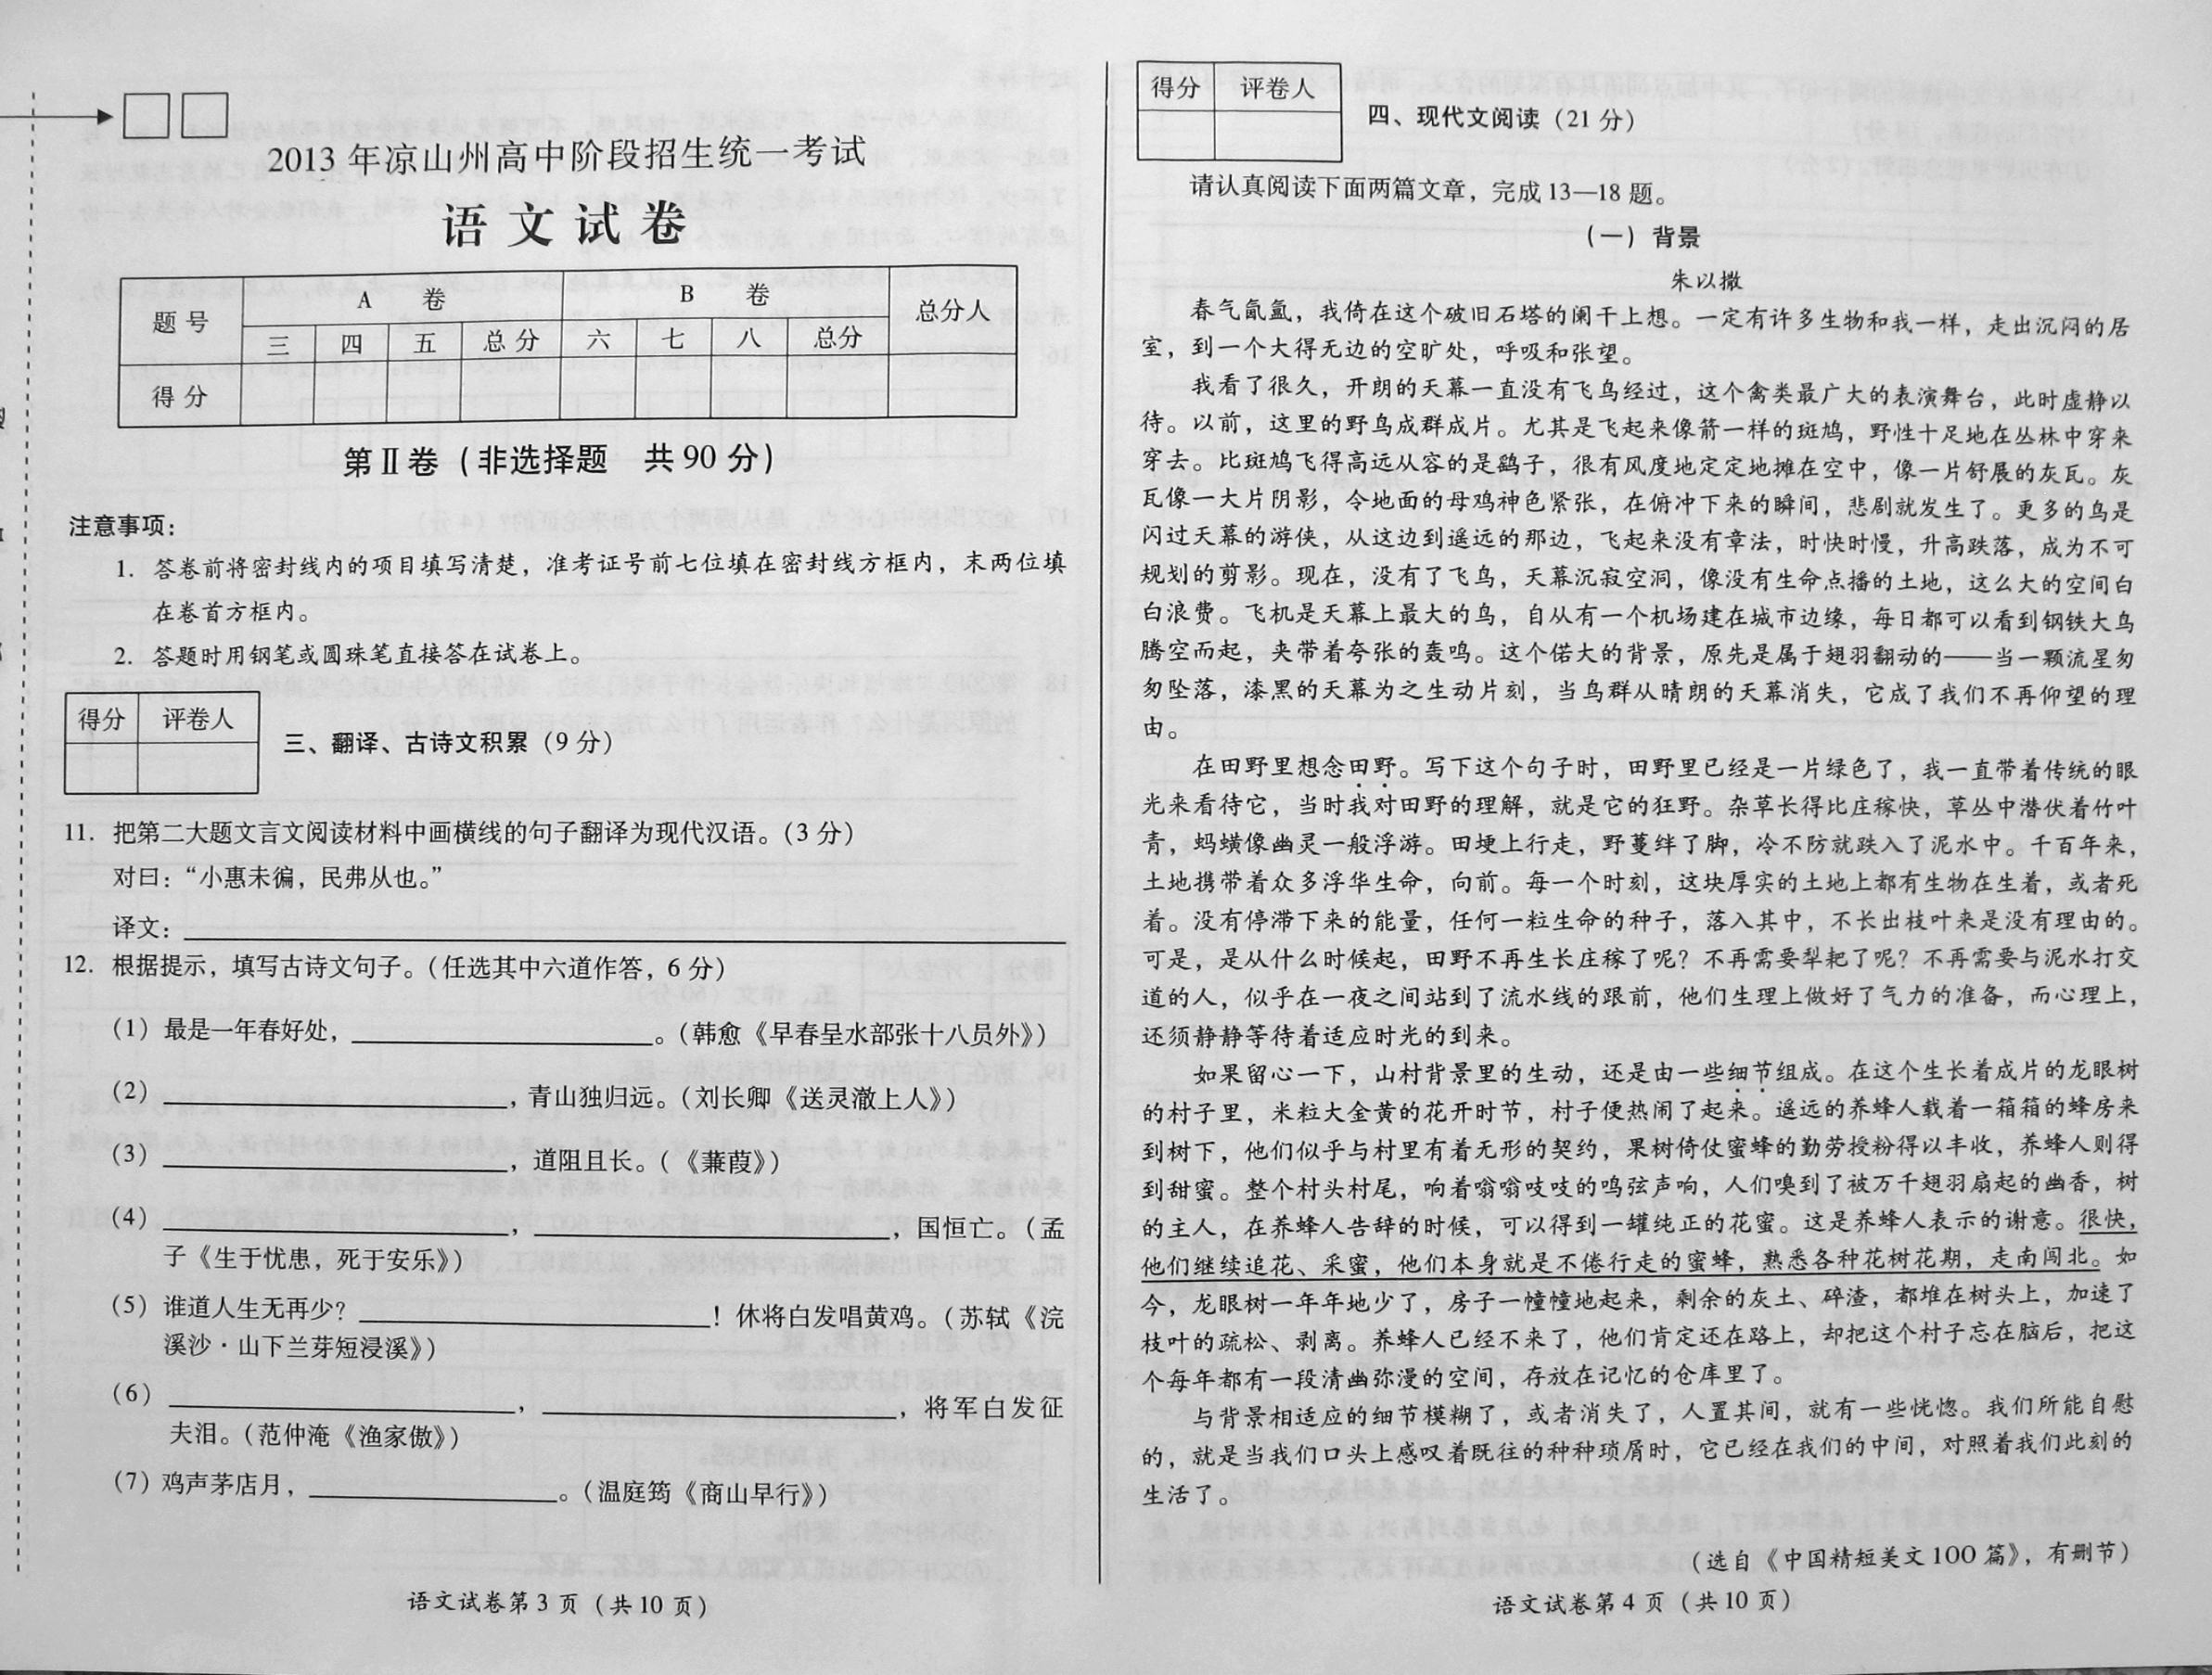 2013年凉山州高中阶段招生统一考试
语文试卷
题号 A 卷 B 卷 总分人
三 四 五 总分 六 七 八 总分
得分
第Ⅱ卷（非选择题 共90分）
注意事项：
1. 答卷前将密封线内的项目填写清楚，准考证号前七位填在密封线方框内，末两位填
在卷首方框内。
2. 答题时用钢笔或圆珠笔直接答在试卷上。
得分 评卷人
三、翻译、古诗文积累（9分）
11. 把第二大题文言文阅读材料中画横线的句子翻译为现代汉语。（3分）
对曰：“小惠未徧，民弗从也。”
译文：
12. 根据提示，填写古诗文句子。（任选其中六道作答，6分）
（1）最是一年春好处，。（韩愈《早春呈水部张十八员外》）
（2），青山独归远。（刘长卿《送灵澈上人》）
（3），道阻且长。（《蒹葭》）
（4），，国恒亡。（孟
子《生于忧患，死于安乐》）
（5）谁道人生无再少？！休将白发唱黄鸡。（苏轼《浣
溪沙·山下兰芽短浸溪》）
（6），，将军白发征
夫泪。（范仲淹《渔家傲》）
（7）鸡声茅店月，。（温庭筠《商山早行》）
语文试卷第3页（共10页）
得分 评卷人
四、现代文阅读（21分）
请认真阅读下面两篇文章，完成13—18题。
（一）背景
朱以撒
春气氤氲，我倚在这个破旧石塔的阑干上想。一定有许多生物和我一样，走出沉闷的居
室，到一个大得无边的空旷处，呼吸和张望。
我看了很久，开朗的天幕一直没有飞鸟经过，这个禽类最广大的表演舞台，此时虚静以
待。以前，这里的野鸟成群成片。尤其是飞起来像箭一样的斑鸠，野性十足地在丛林中穿来
穿去。比斑鸠飞得高远从容的是鹞子，很有风度地定定地摊在空中，像一片舒展的灰瓦。灰
瓦像一大片阴影，令地面的母鸡神色紧张，在俯冲下来的瞬间，悲剧就发生了。更多的鸟是
闪过天幕的游侠，从这边到遥远的那边，飞起来没有章法，时快时慢，升高跌落，成为不可
规划的剪影。现在，没有了飞鸟，天幕沉寂空洞，像没有生命点播的土地，这么大的空间白
白浪费。飞机是天幕上最大的鸟，自从有一个机场建在城市边缘，每日都可以看到钢铁大鸟
腾空而起，夹带着夸张的轰鸣。这个偌大的背景，原先是属于翅羽翻动的——当一颗流星匆
匆坠落，漆黑的天幕为之生动片刻，当鸟群从晴朗的天幕消失，它成了我们不再仰望的理
由。
在田野里想念田野。写下这个句子时，田野里已经是一片绿色了，我一直带着传统的眼
光来看待它，当时我对田野的理解，就是它的狂野。杂草长得比庄稼快，草丛中潜伏着竹叶
青，蚂蟥像幽灵一般浮游。田埂上行走，野蔓绊了脚，冷不防就跌入了泥水中。千百年来，
土地携带着众多浮华生命，向前。每一个时刻，这块厚实的土地上都有生物在生着，或者死
着。没有停滞下来的能量，任何一粒生命的种子，落入其中，不长出枝叶来是没有理由的。
可是，是从什么时候起，田野不再生长庄稼了呢？不再需要犁耙了呢？不再需要与泥水打交
道的人，似乎在一夜之间站到了流水线的跟前，他们生理上做好了气力的准备，而心理上，
还须静静等待着适应时光的到来。
如果留心一下，山村背景里的生动，还是由一些细节组成。在这个生长着成片的龙眼树
的村子里，米粒大金黄的花开时节，村子便热闹了起来。遥远的养蜂人载着一箱箱的蜂房来
到树下，他们似乎与村里有着无形的契约，果树倚仗蜜蜂的勤劳授粉得以丰收，养蜂人则得
到甜蜜。整个村头村尾，响着嗡嗡吱吱的鸣弦声响，人们嗅到了被万千翅羽扇起的幽香，树
的主人，在养蜂人告辞的时候，可以得到一罐纯正的花蜜。这是养蜂人表示的谢意。很快，
他们继续追花、采蜜，他们本身就是不倦行走的蜜蜂，熟悉各种花树花期，走南闯北。如
今，龙眼树一年年地少了，房子一幢幢地起来，剩余的灰土、碎渣，都堆在树头上，加速了
枝叶的疏松、剥离。养蜂人已经不来了，他们肯定还在路上，却把这个村子忘在脑后，把这
个每年都有一段清幽弥漫的空间，存放在记忆的仓库里了。
与背景相适应的细节模糊了，或者消失了，人置其间，就有一些恍惚。我们所能自慰
的，就是当我们口头上感叹着既往的种种琐屑时，它已经在我们的中间，对照着我们此刻的
生活了。
（选自《中国精短美文100篇》，有删节）
语文试卷第4页（共10页）